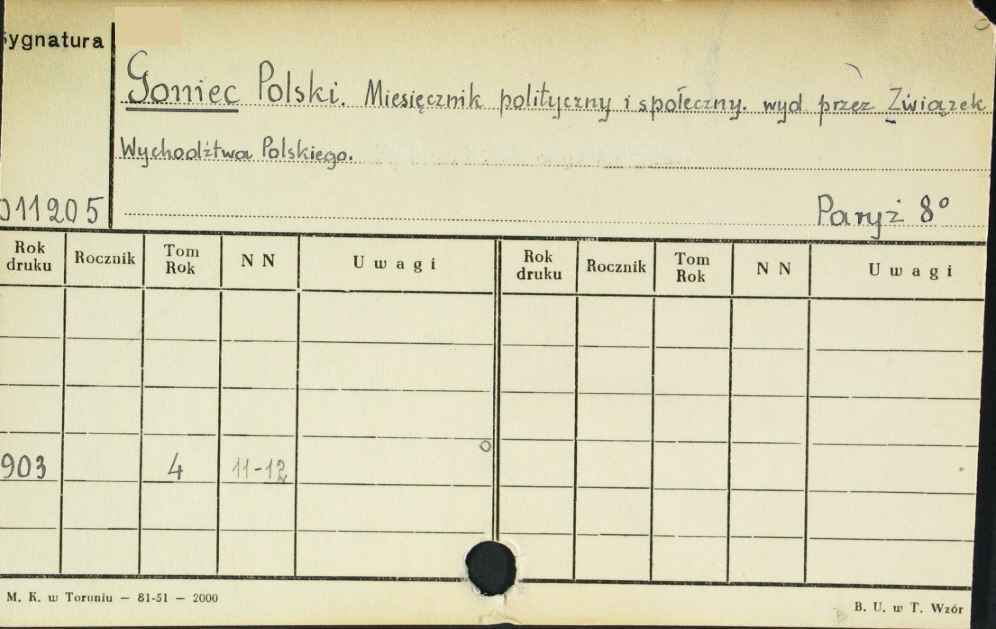 Sygnatura
Goniec Polski. Miesięcznik polityczny i społeczny. wyd przez Związek
Wychodźtwa Polskiego.
011205 Paryż 8°
Rok druku Rocznik Tom Rok N N Uwagi Rok druku Rocznik Tom Rok N N Uwagi
903 4 11-12
M. K. w Toruniu — 81-51 — 2000
B. U. w T. Wzór